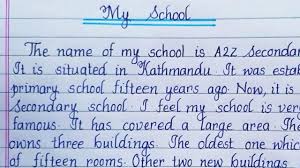 My School
The name of my school is A2Z Secondar
It is situated in Kathmandu. It was estab
primary school fifteen years ago. Now, it is
secondary school. I feel my school is very
famous. It has covered a large area. The
owns three buildings. The oldest one which
of fifteen rooms. Other two new buildings